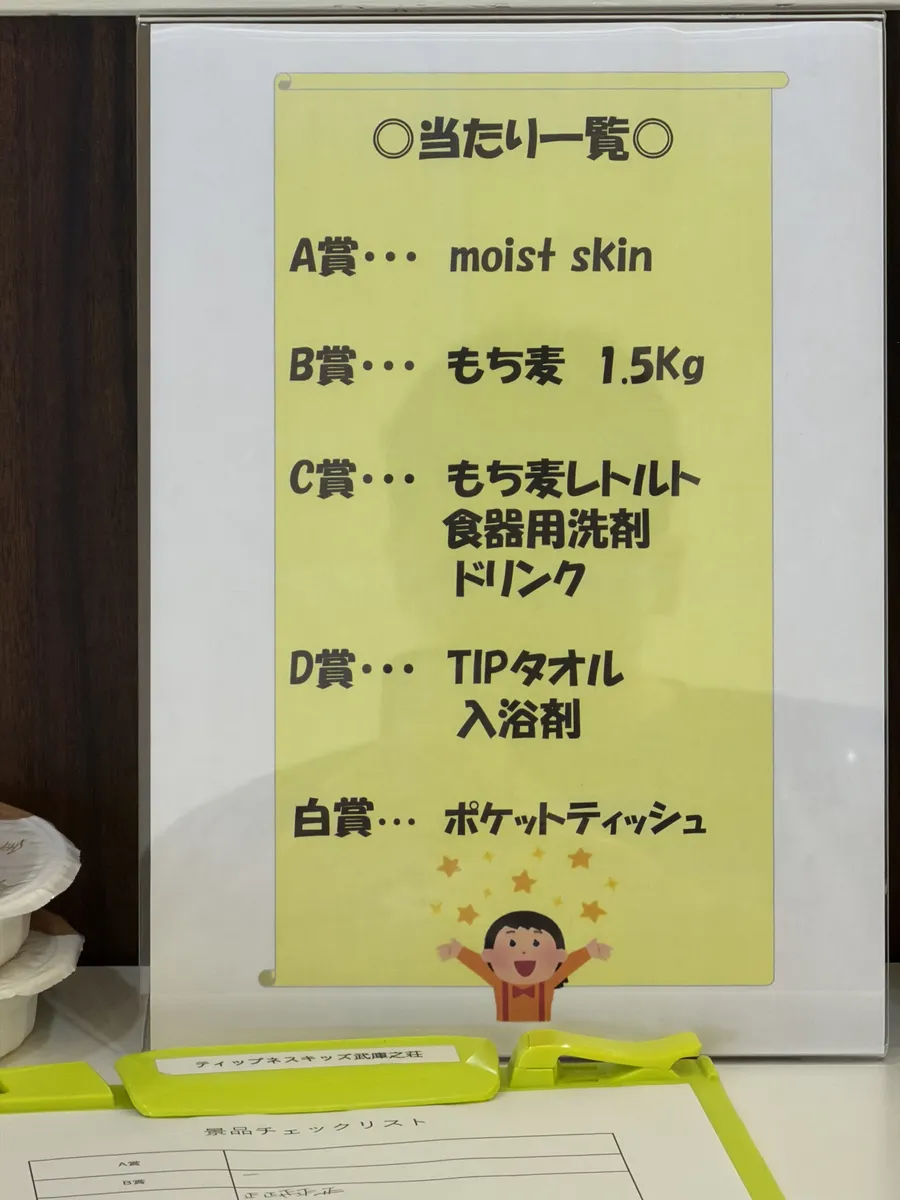 ◎当たり一覧◎
A賞・・・ moist skin
B賞・・・ もち麦 1.5Kg
C賞・・・ もち麦レトルト
食器用洗剤
ドリンク
D賞・・・ TIPタオル
入浴剤
白賞… ポケットティッシュ
ティップネスキッズ武庫之荘
景品チェックリスト
A賞
B賞